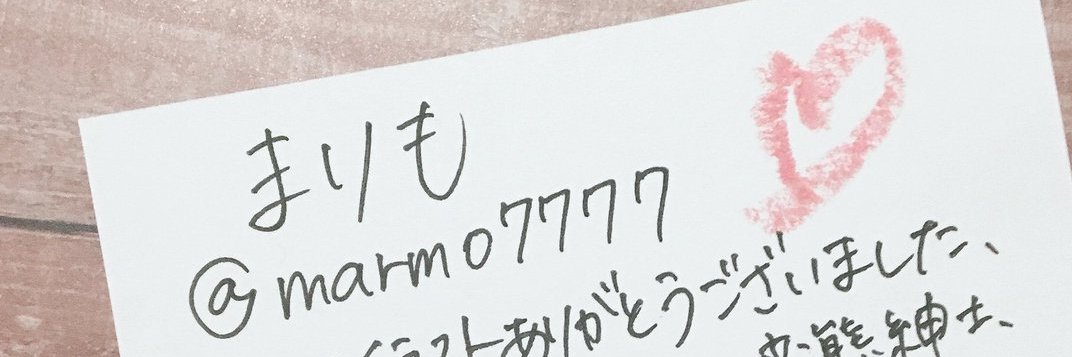 まりも
@marmo7777
イラストありがとうございました、
熊紳士、